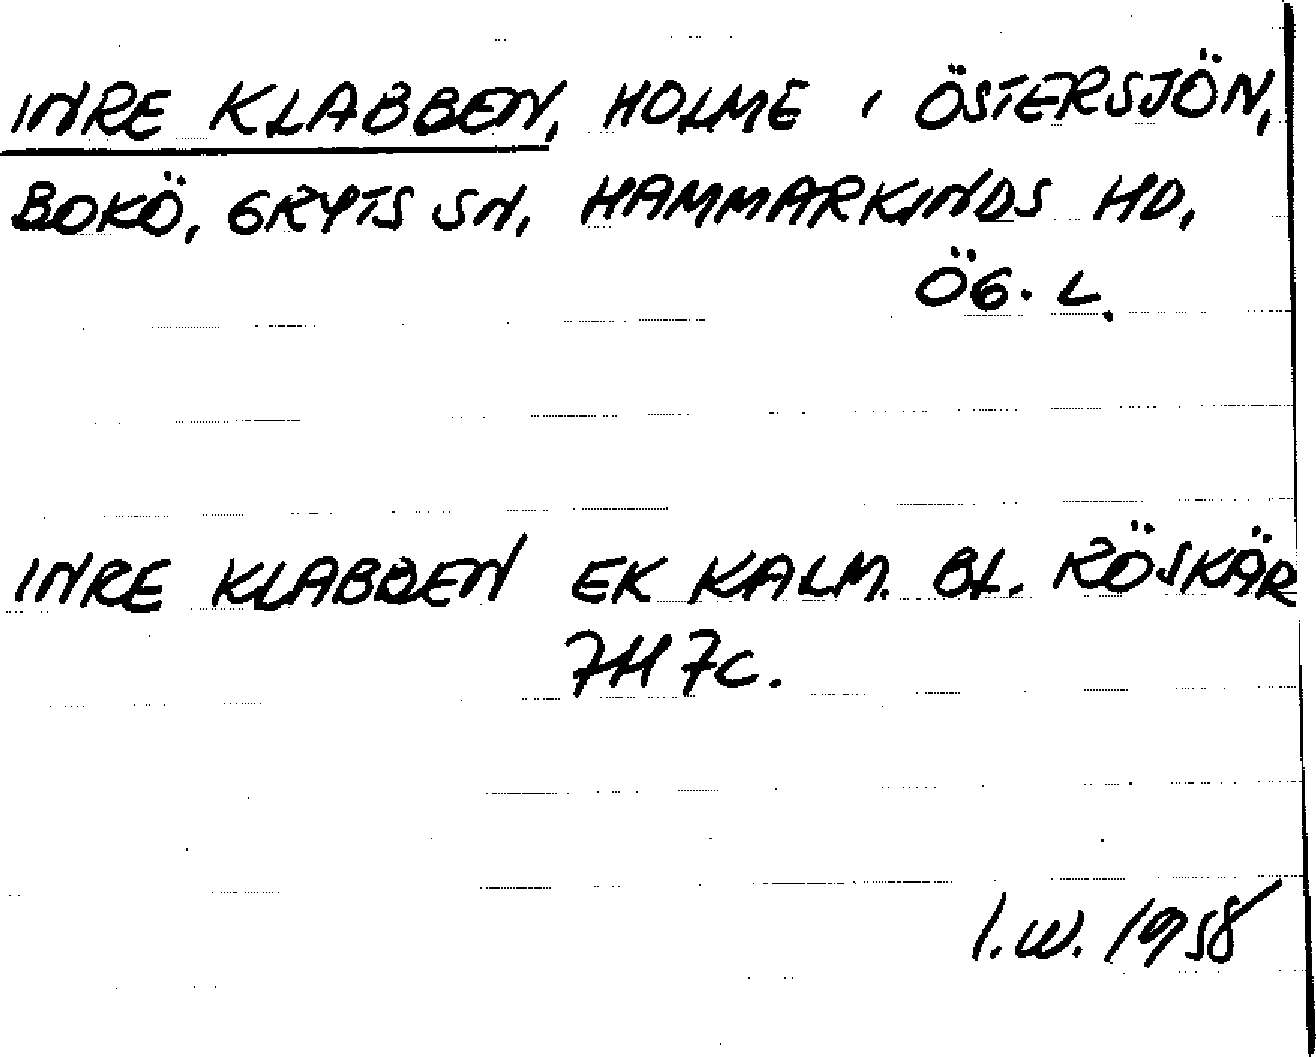 INRE KLABBEN, HOLME I ÖSTERSJÖN,
BOKÖ, GRYTS SN, HAMMARKINDS HD,
ÖG. L.
INRE KLABBEN EK KALM. BL. RÖSKÄR
7H 7C.
I.W. 1958